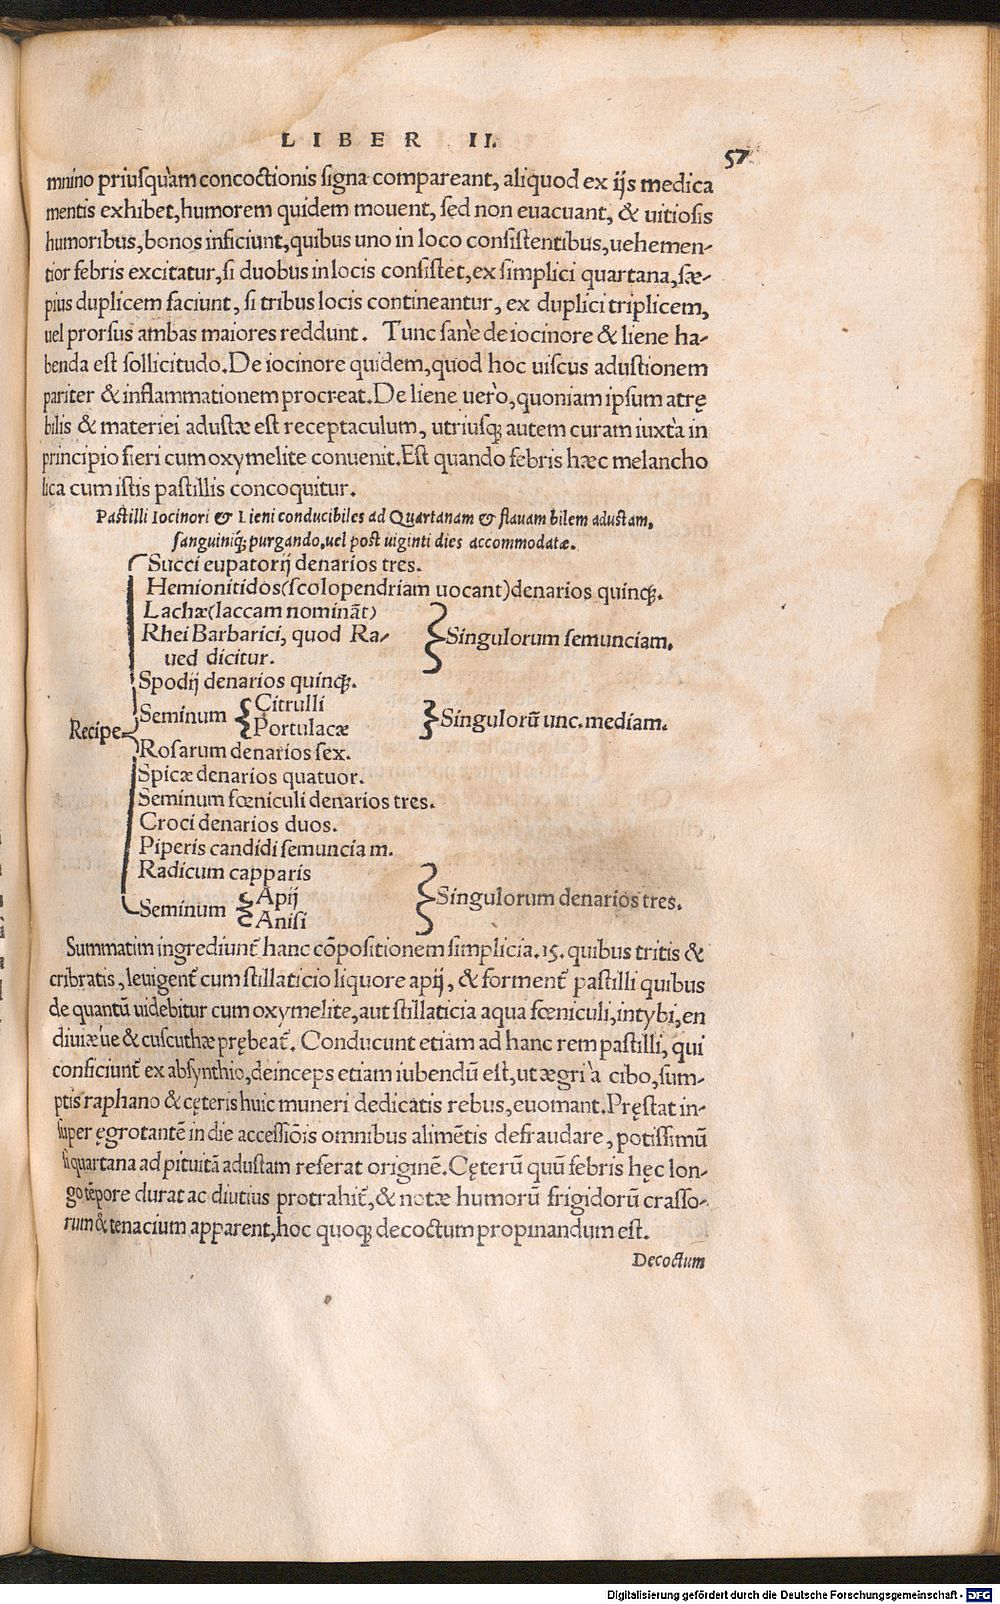 LIBER II.
57
mnino priusquàm concoctionis signa compareant, aliquod ex ijs medica
mentis exhibet, humorem quidem mouent, sed non euacuant, & uitiosis
humoribus, bonos inficiunt, quibus uno in loco consistentibus, uehemen-
tior febris excitatur, si duobus in locis consistet, ex simplici quartana, sæ-
pius duplicem faciunt, si tribus locis contineantur, ex duplici triplicem,
uel prorsus ambas maiores reddunt. Tunc sanè de iocinore & liene ha-
benda est sollicitudo. De iocinore quidem, quod hoc uiscus adustionem
pariter & inflammationem procreat. De liene uerò, quoniam ipsum atrę
bilis & materiei adustæ est receptaculum, utriusq; autem curam iuxtà in
principio fieri cum oxymelite conuenit. Est quando febris hæc melancho
lica cum istis pastillis concoquitur.
Pastilli Iocinori & Lieni conducibiles ad Quartanam & flauam bilem adustam,
sanguiniq; purgando, uel post uiginti dies accommodatæ.
Succi eupatorij denarios tres.
Hemionitidos (scolopendriam uocant) denarios quinq;.
Lachæ (laccam nominãt)
Rhei Barbarici, quod Ra-
ued dicitur.
Singulorum semunciam.
Spodij denarios quinq;.
Recipe
Seminum
Citrulli
Portulacæ
Singulorũ unc. mediam.
Rosarum denarios sex.
Spicæ denarios quatuor.
Seminum fœniculi denarios tres.
Croci denarios duos.
Piperis candidi semunciam.
Radicum capparis
Seminum
Apij
Anisi
Singulorum denarios tres.
Summatim ingrediunt̃ hanc cõpositionem simplicia. 15. quibus tritis &
cribratis, leuigent̃ cum stillaticio liquore apij, & forment̃ pastilli quibus
de quantũ uidebitur cum oxymelite, aut stillaticia aqua fœniculi, intybi, en
diuiæ ue & cuscuthæ prębeat̃. Conducunt etiam ad hanc rem pastilli, qui
conficiunt̃ ex absynthio, deinceps etiam iubendũ est, ut ægri à cibo, sum-
ptis raphano & cęteris huic muneri dedicatis rebus, euomant. Pręstat in-
super ęgrotantẽ in die accessiõis omnibus alimẽtis defraudare, potissimũ
si quartana ad pituitã adustam referat originẽ. Cęterũ quũ febris hęc lon-
go tẽpore durat ac diutius protrahit̃, & notæ humorũ frigidorũ crasso-
rum & tenacium apparent, hoc quoq; decoctum propinandum est.
Decoctum
Digitalisierung gefördert durch die Deutsche Forschungsgemeinschaft - DFG